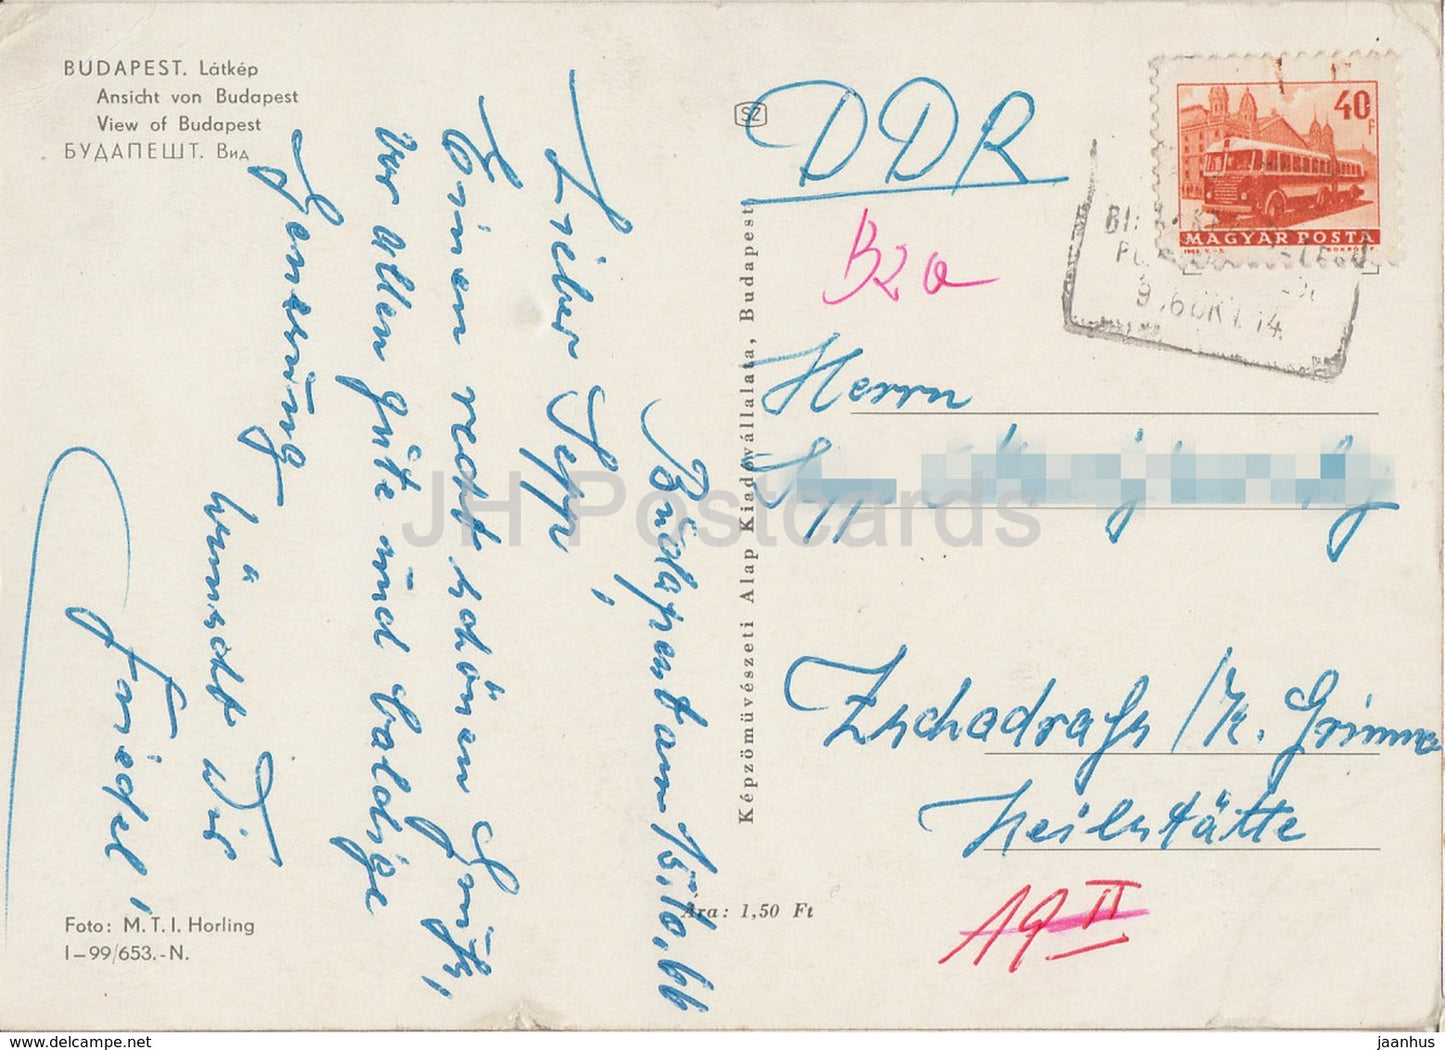 BUDAPEST. Látkép
Ansicht von Budapest
View of Budapest
БУДАПЕШТ. Вид
Budapest am 15.10.66
Lieber Sepp,
Einen recht schönen Gruß,
vor allen gute und baldige
Genesung
wünscht Dir
Friedel!
Foto: M. T. I. Horling
I–99/653.-N.
SZ
Képzőművészeti Alap Kiadóvállalata, Budapest
Ára: 1,50 Ft
DDR
B2a
40 f
MAGYAR POSTA
14
Herrn
Zschadraß / K. Grimma
Heilstätte
19 II
JH Postcards
www.delcampe.net
jaanhus